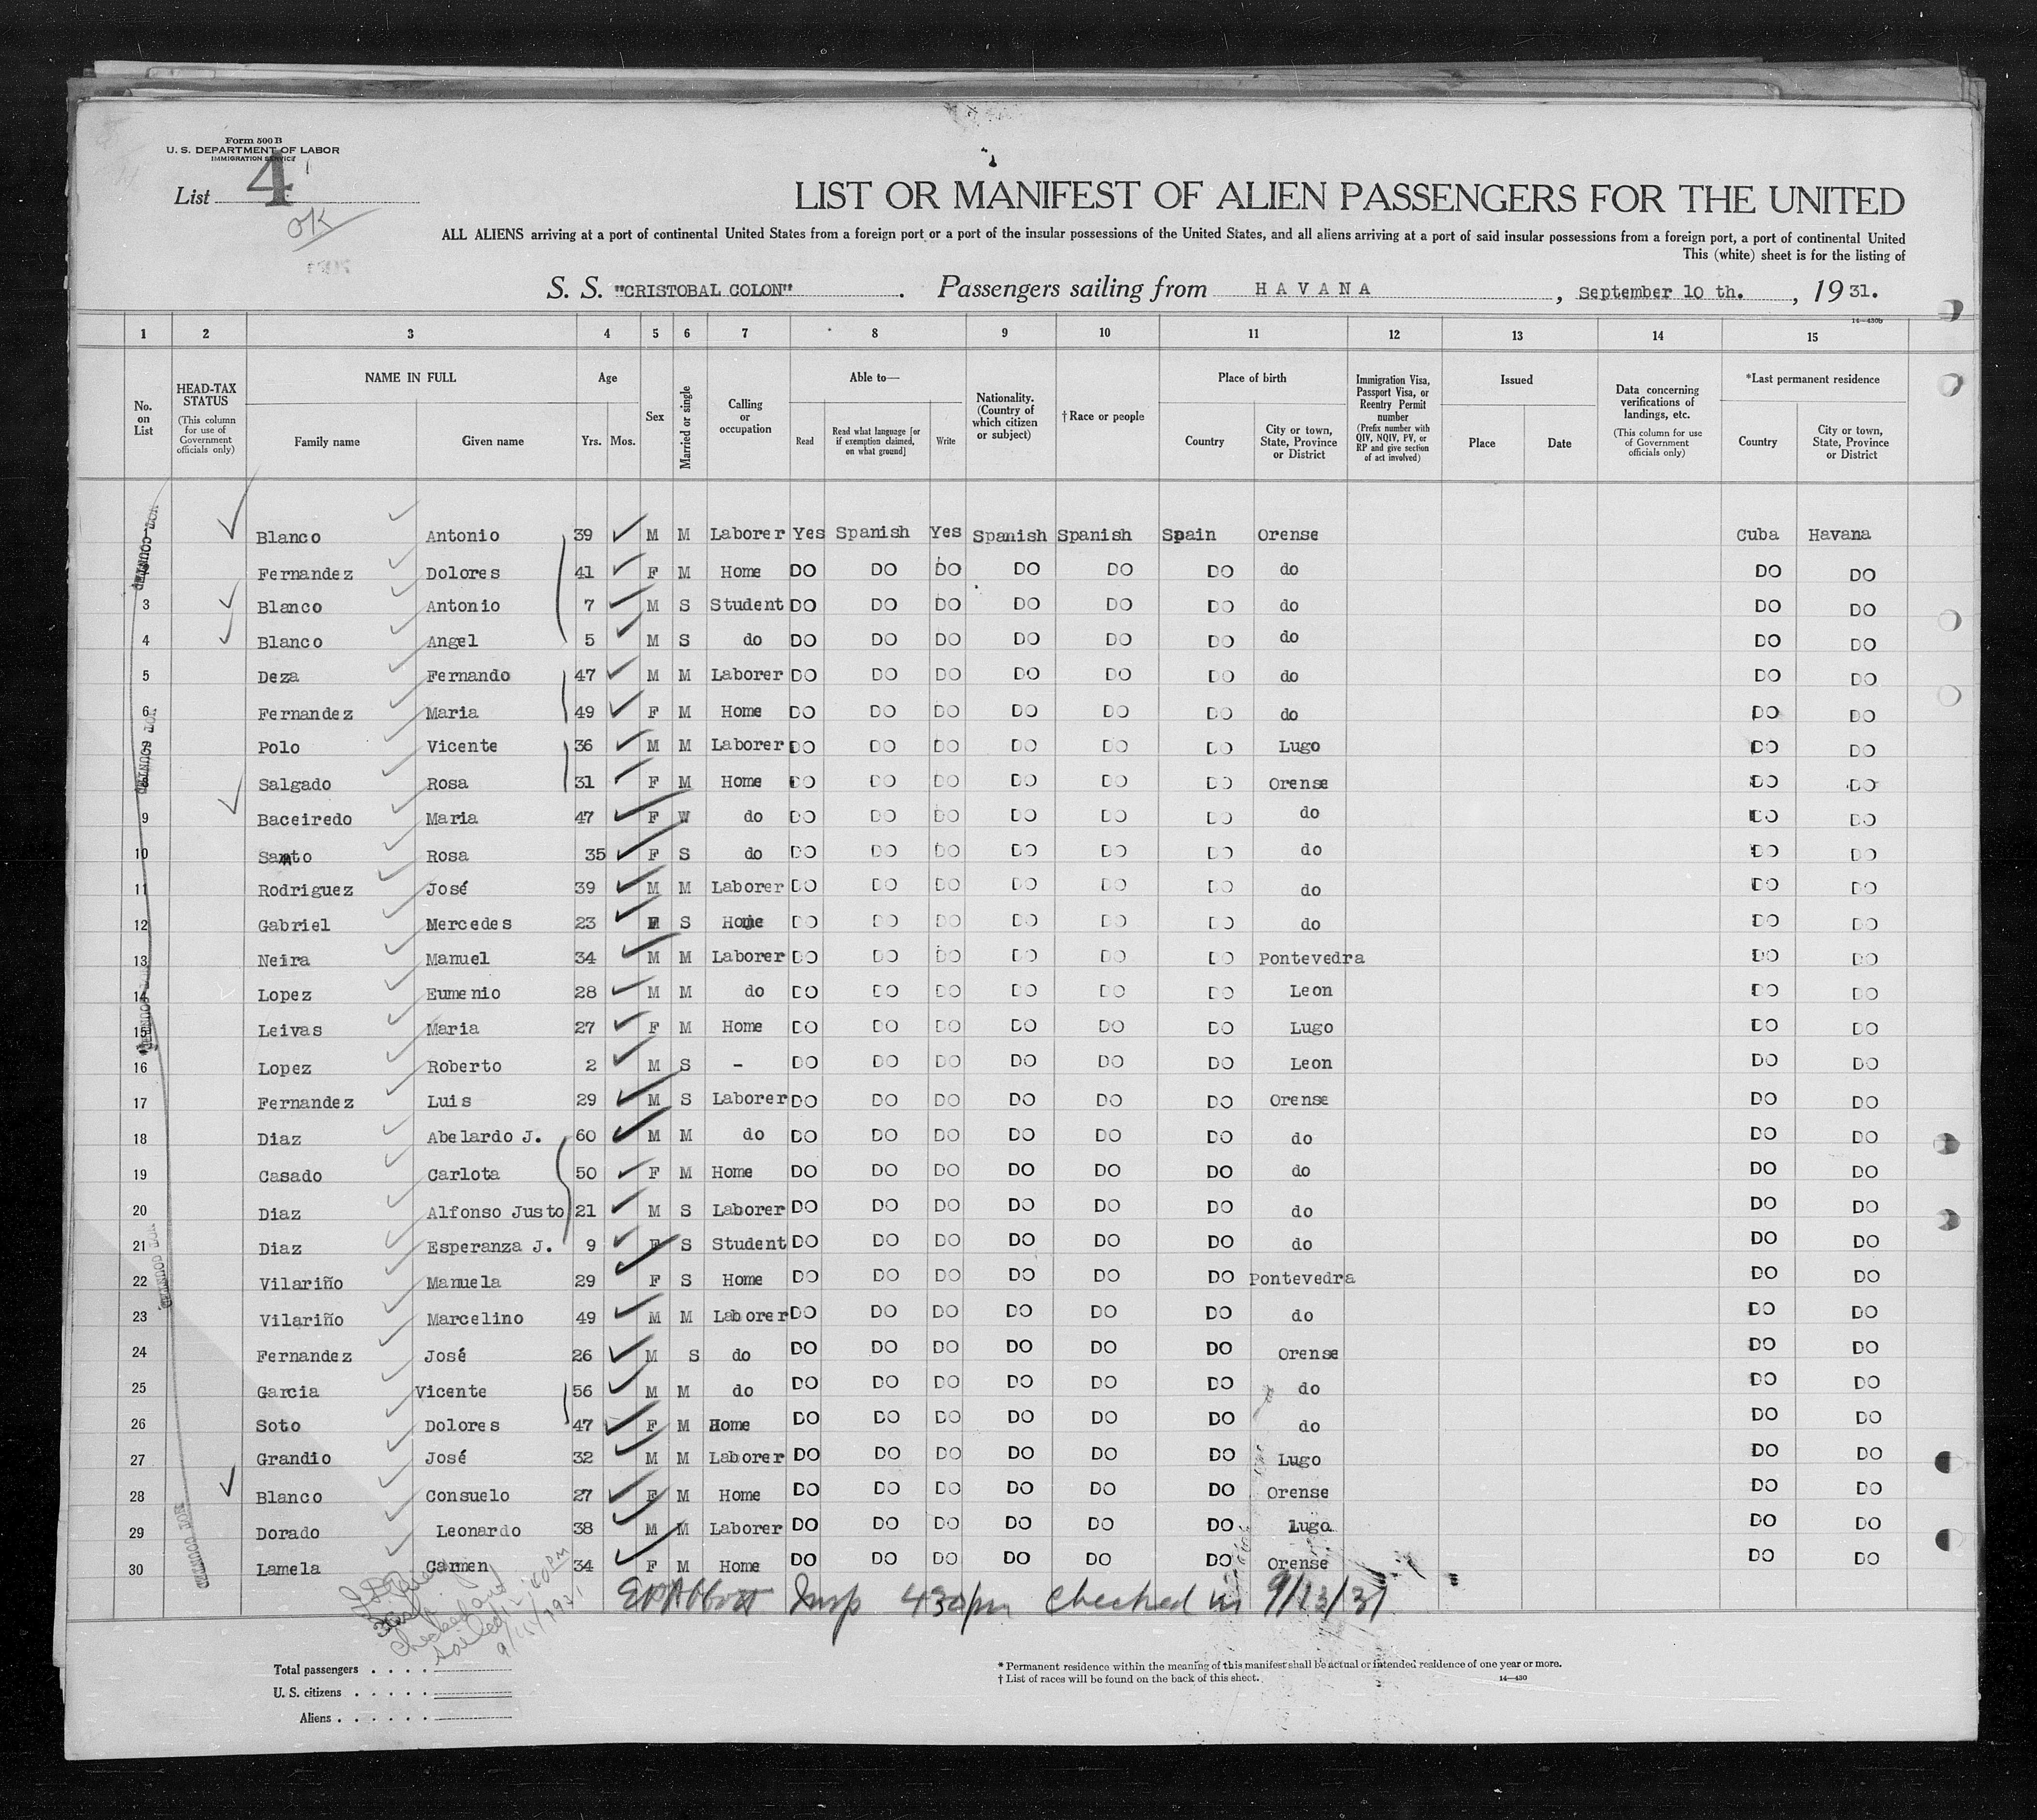 Form 500 B
U. S. DEPARTMENT OF LABOR
IMMIGRATION SERVICE
List 4
OK
LIST OR MANIFEST OF ALIEN PASSENGERS FOR THE UNITED
ALL ALIENS arriving at a port of continental United States from a foreign port or a port of the insular possessions of the United States, and all aliens arriving at a port of said insular possessions from a foreign port, a port of continental United
This (white) sheet is for the listing of
S. S. "CRISTOBAL COLON". Passengers sailing from HAVANA, September 10 th., 1931.
14—430b
1 2 3 4 5 6 7 8 9 10 11 12 13 14 15
No. on List
HEAD-TAX STATUS (This column for use of Government officials only)
NAME IN FULL Family name Given name
Age Yrs. Mos.
Sex
Married or single
Calling or occupation
Able to— Read Read what language [or if exemption claimed, on what ground] Write
Nationality. (Country of which citizen or subject)
† Race or people
Place of birth Country City or town, State, Province or District
Immigration Visa, Passport Visa, or Reentry Permit number (Prefix number with QIV, NQIV, PV, or RP and give section of act involved)
Issued Place Date
Data concerning verifications of landings, etc. (This column for use of Government officials only)
*Last permanent residence Country City or town, State, Province or District
Blanco Antonio 39 M M Laborer Yes Spanish Yes Spanish Spanish Spain Orense Cuba Havana
Fernandez Dolores 41 F M Home DO DO DO DO DO DO do DO DO
3 Blanco Antonio 7 M S Student DO DO DO DO DO DO do DO DO
4 Blanco Angel 5 M S do DO DO DO DO DO DO do DO DO
5 Deza Fernando 47 M M Laborer DO DO DO DO DO DO do DO DO
6 Fernandez Maria 49 F M Home DO DO DO DO DO DO do DO DO
Polo Vicente 36 M M Laborer DO DO DO DO DO DO Lugo DO DO
8 Salgado Rosa 31 F M Home DO DO DO DO DO DO Orense DO DO
9 Baceiredo Maria 47 F W do DO DO DO DO DO DO do DO DO
10 Santo Rosa 35 F S do DO DO DO DO DO DO do DO DO
11 Rodriguez José 39 M M Laborer DO DO DO DO DO DO do DO DO
12 Gabriel Mercedes 23 F S Home DO DO DO DO DO DO do DO DO
13 Neira Manuel 34 M M Laborer DO DO DO DO DO DO Pontevedra DO DO
14 Lopez Eumenio 28 M M do DO DO DO DO DO DO Leon DO DO
15 Leivas Maria 27 F M Home DO DO DO DO DO DO Lugo DO DO
16 Lopez Roberto 2 M S - DO DO DO DO DO DO Leon DO DO
17 Fernandez Luis 29 M S Laborer DO DO DO DO DO DO Orense DO DO
18 Diaz Abelardo J. 60 M M do DO DO DO DO DO DO do DO DO
19 Casado Carlota 50 F M Home DO DO DO DO DO DO do DO DO
20 Diaz Alfonso Justo 21 M S Laborer DO DO DO DO DO DO do DO DO
21 Diaz Esperanza J. 9 F S Student DO DO DO DO DO DO do DO DO
22 Vilariño Manuela 29 F S Home DO DO DO DO DO DO Pontevedra DO DO
23 Vilariño Marcelino 49 M M Laborer DO DO DO DO DO DO do DO DO
24 Fernandez José 26 M S do DO DO DO DO DO DO Orense DO DO
25 Garcia Vicente 56 M M do DO DO DO DO DO DO do DO DO
26 Soto Dolores 47 F M Home DO DO DO DO DO DO do DO DO
27 Grandio José 32 M M Laborer DO DO DO DO DO DO Lugo DO DO
28 Blanco Consuelo 27 F M Home DO DO DO DO DO DO Orense DO DO
29 Dorado Leonardo 38 M M Laborer DO DO DO DO DO DO Lugo DO DO
30 Lamela Carmen 34 F M Home DO DO DO DO DO DO Orense DO DO
NOT COUNTED
NOT COUNTED
NOT COUNTED
NOT COUNTED
NOT COUNTED
Abbott Insp 430 pm Checked in 9/13/31
checked and
sailed 12:40 PM
9/11/1931
Total passengers . . . .
U. S. citizens . . . . .
Aliens . . . . . .
* Permanent residence within the meaning of this manifest shall be actual or intended residence of one year or more.
† List of races will be found on the back of this sheet.
14—430